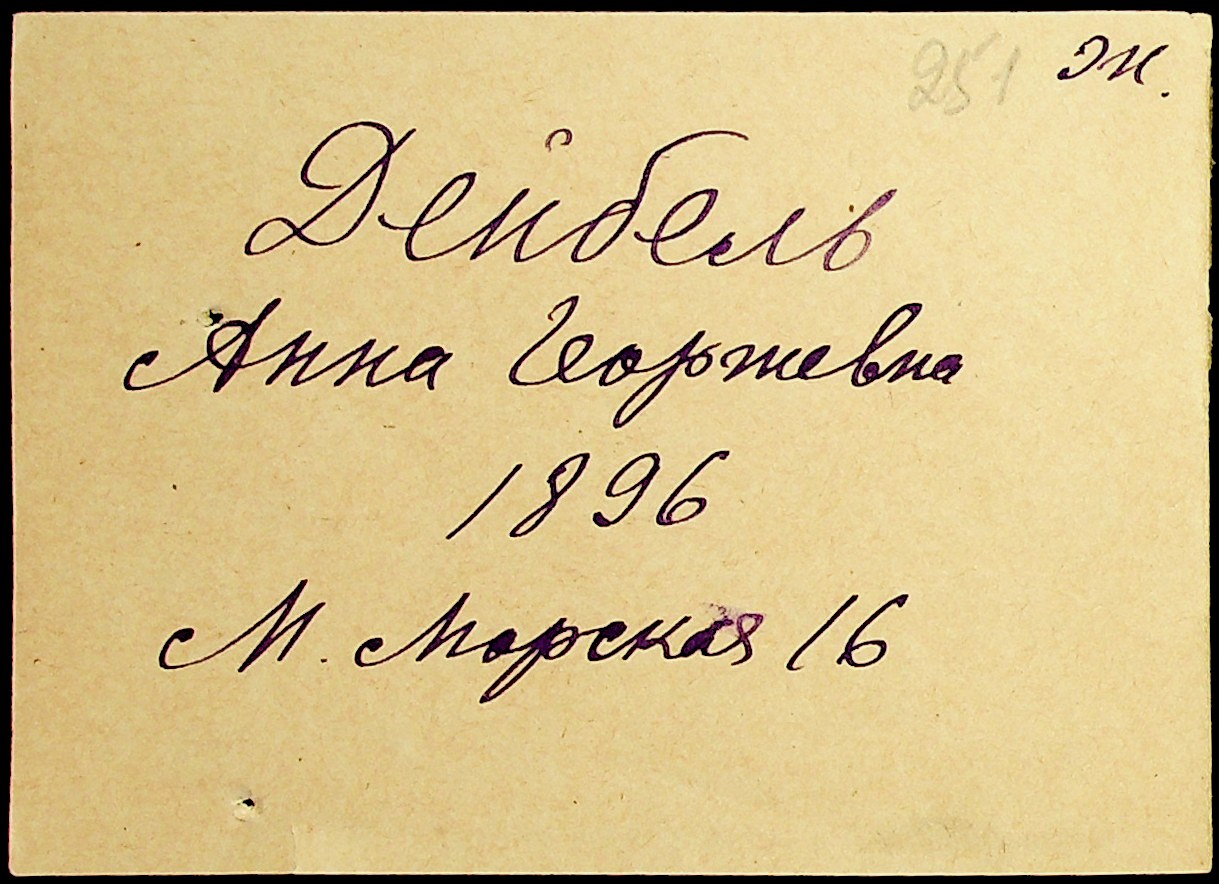 251 ж.
Дейбель
Анна Георжевна
1896
М. Морская 16